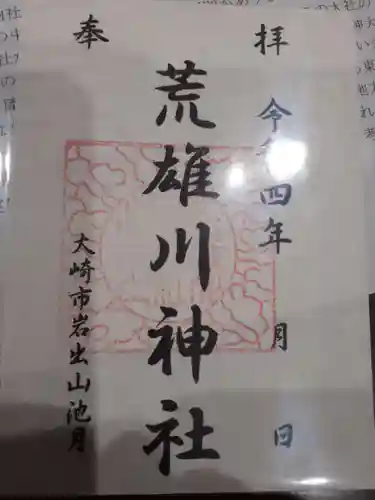 奉
拝
荒雄川神社
令和四年 月 日
大崎市岩出山池月